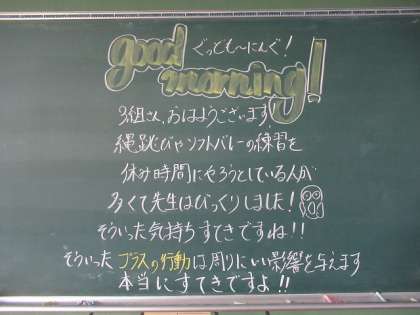 good ぐっども〜にんぐ!
morning!
3組さん、おはようございます。
縄跳びやソフトバレーの練習を
休み時間にやろうとしている人が
多くて先生はびっくりしました!
そういった気持ちすてきですね!!
そういったプラスの行動は周りにいい影響を与えます
本当にすてきですよ!!